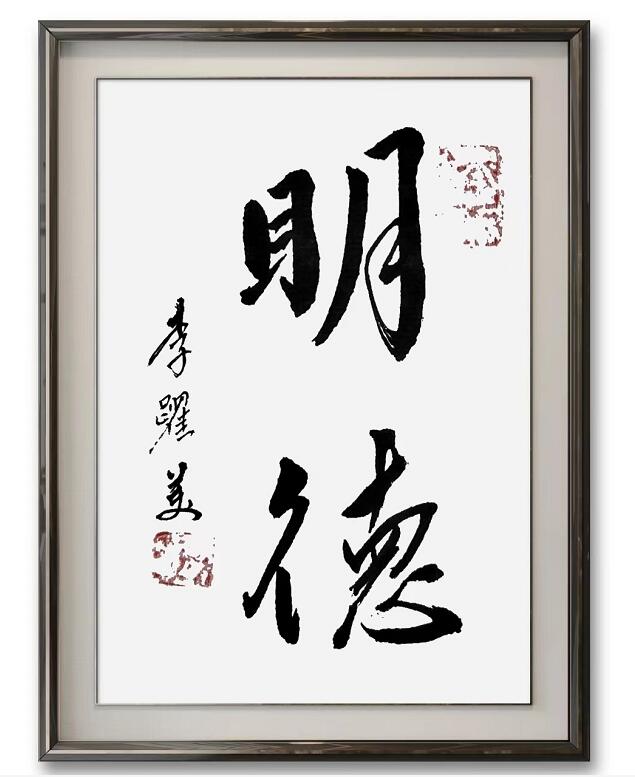 明德
李躍美